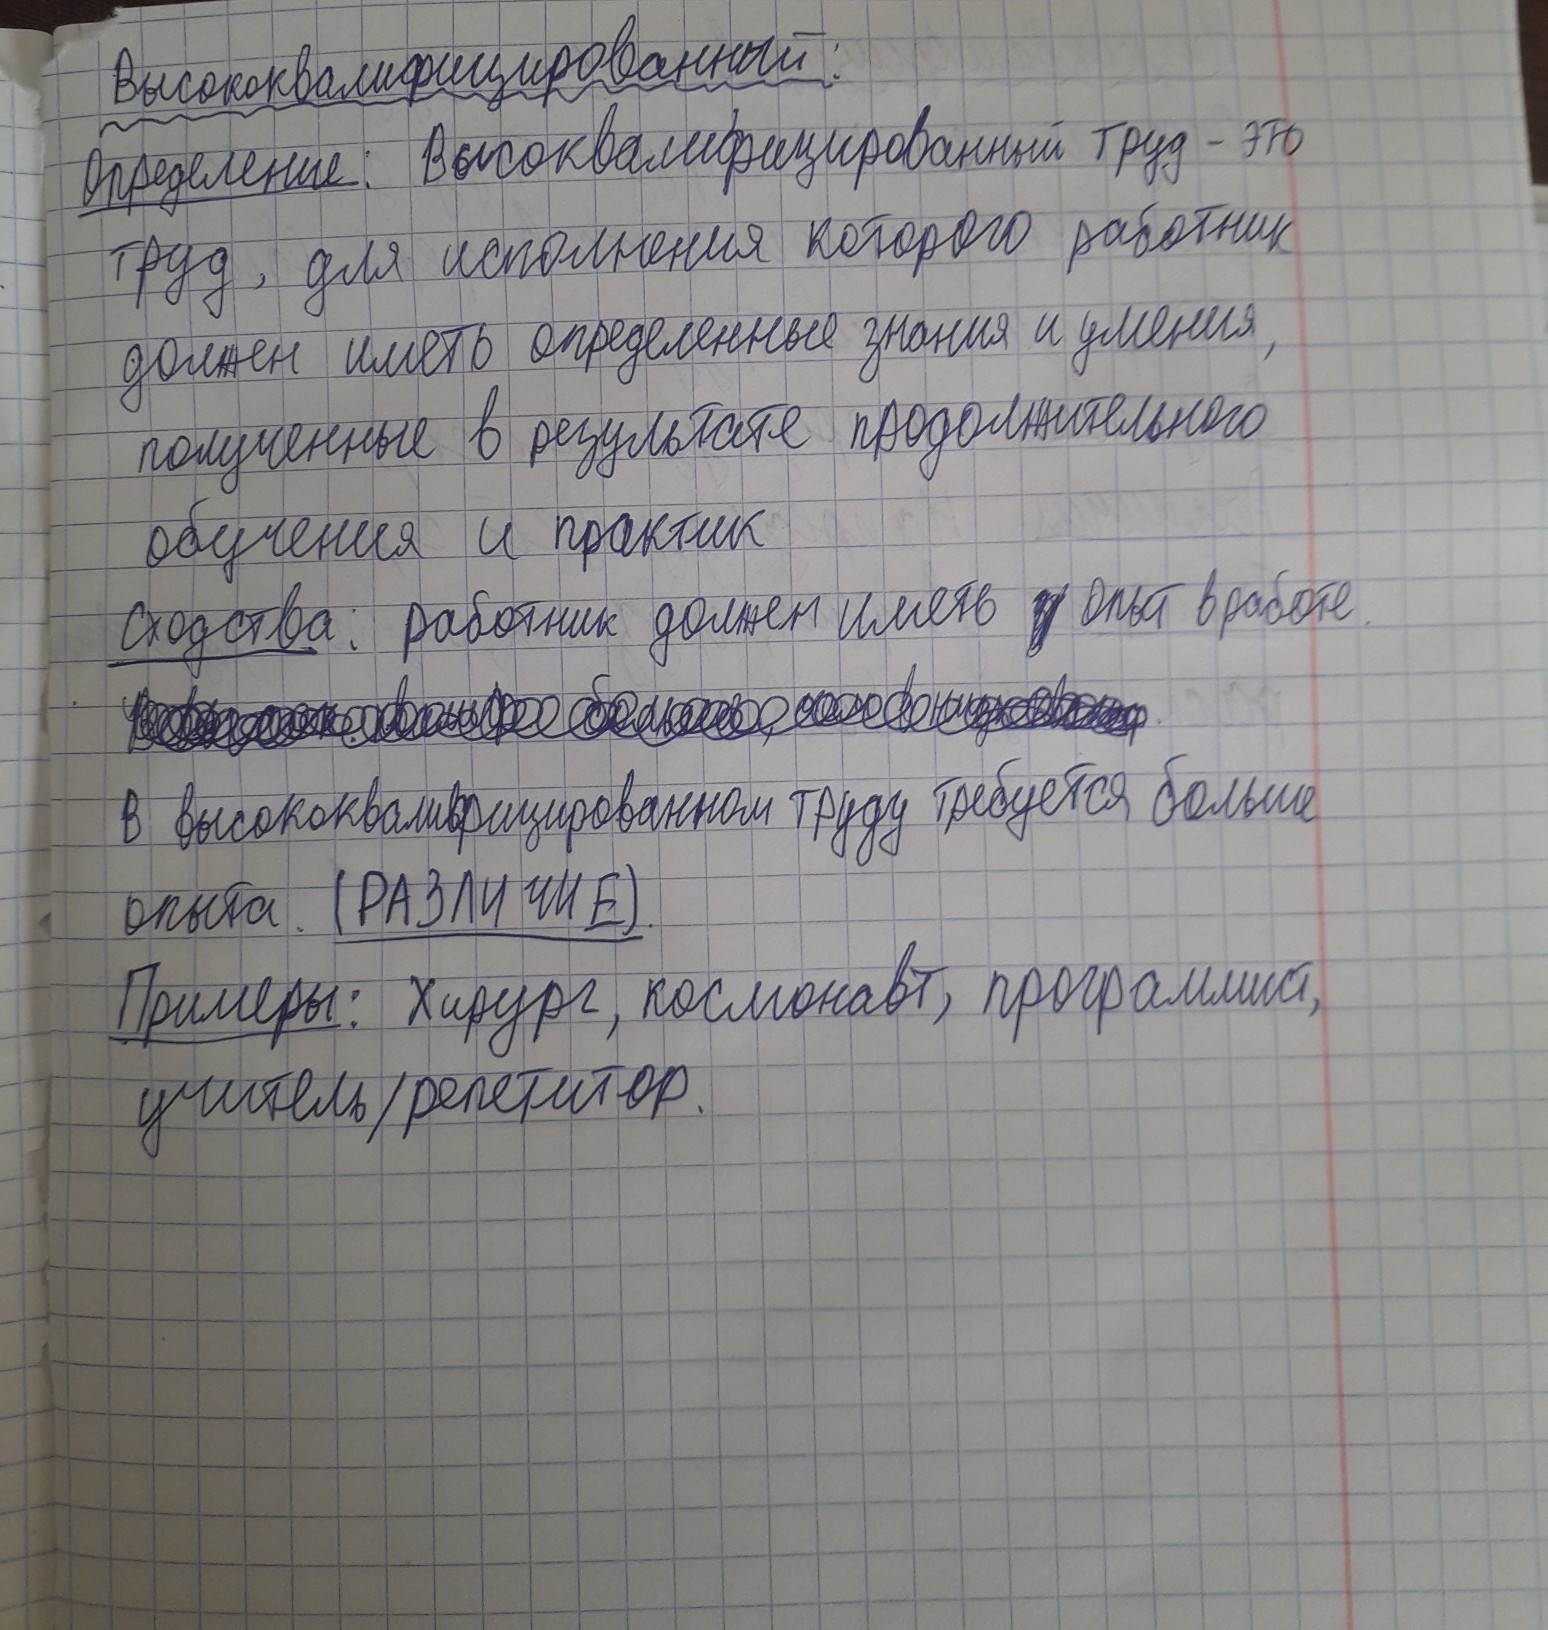 Высококвалифицированный:
Определение: Высоквалифицированный труд - это
труд, для исполнения которого работник
должен иметь определенные знания и умения,
полученные в результате продолжительного
обучения и практик
Сходства: работник должен иметь опыт в работе.
В высококвалифицированном труду требуется больше
опыта. (РАЗЛИЧИЕ).
Примеры: Хирург, космонавт, программист,
учитель/репетитор.